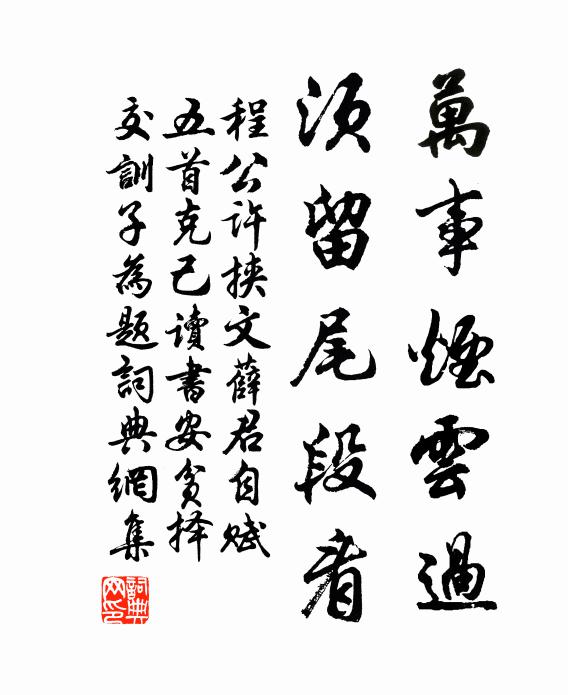 萬事煙雲過
須留尾段看
程公許挾文薛君自賦
五首克己讀書安貧择
交訓子為題詞典網集
詞典網印